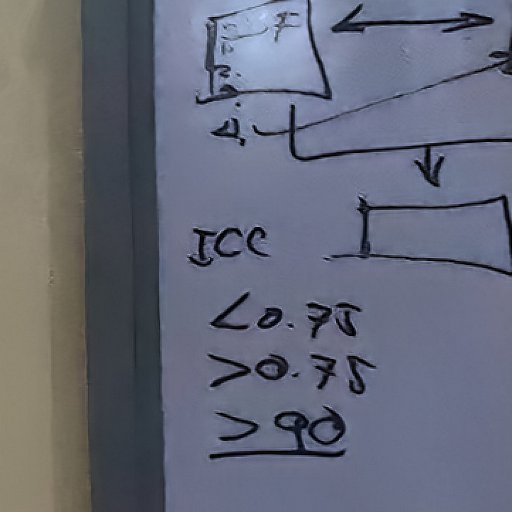 ICC
<0.75
>0.75
>90